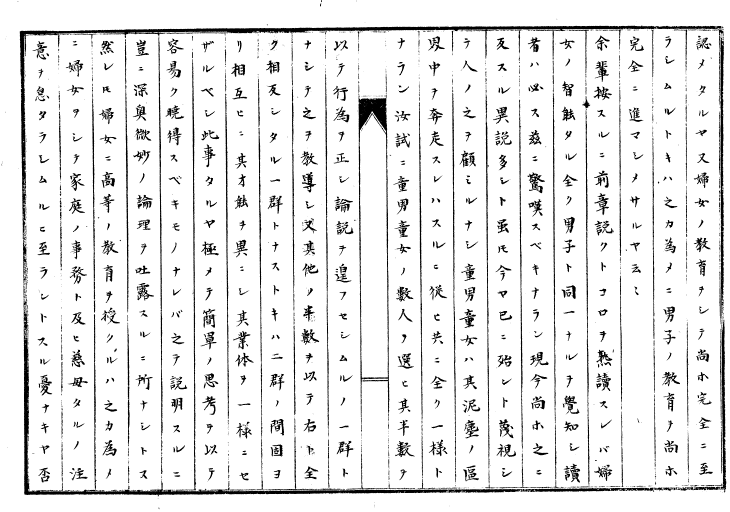 認メタルヤ又婦女ノ教育ヲシテ尚ホ完全ニ至
ラシムルトキハ之カ為メニ男子ノ教育ヲ尚ホ
完全ニ進マシメサルヤ云〻
余輩按スルニ前章説クトコロヲ熟讀スレバ婦
女ノ智能タル全ク男子ト同一ナルヲ覺知シ讀
者ハ必ス茲ニ驚嘆スベキナラン現今尚ホ之ニ
反スル異説多シト虽𪜈今ヤ已ニ殆ント蔑視シ
テ人ノ之ヲ顧ミルナシ童男童女ハ其泥塵ノ區
男中ヲ奔走スレハスルニ従ヒ共ニ全ク一様ト
ナラン汝試ニ童男童女ノ数人ヲ選ヒ其半數ヲ
以テ行為ヲ正シ論説ヲ遑フセシムルノ一群ト
ナシテ之ヲ教導シ又其他ノ半數ヲ以テ右ト全
ク相反シタル一群トナストキハ二群ノ間固ヨ
リ相互ヒニ其才能ヲ異ニシ其業体ヲ一様ニセ
ザルベシ此事タルヤ極メテ簡單ノ思考ヲ以テ
容易ク曉得スベキモノナレバ之テ説明スルニ
豈ニ深奥微妙ノ論理ヲ吐露スルニ所ナシトス
然レ𪜈婦女ニ高等ノ教育ヲ授クルハ之カ為メ
ニ婦女ヲシテ家庭ノ事務ト及ヒ慈母タルノ注
意ヲ怠タラシムルニ至ラントスル憂ナキヤ否